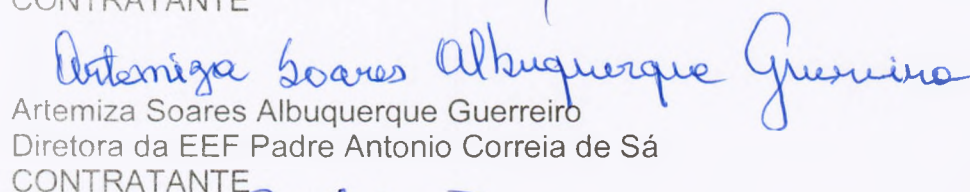 CONTRATANTE
Artemiza Soares Albuquerque Guerreiro
Artemiza Soares Albuquerque Guerreiro
Diretora da EEF Padre Antonio Correia de Sá
CONTRATANTE